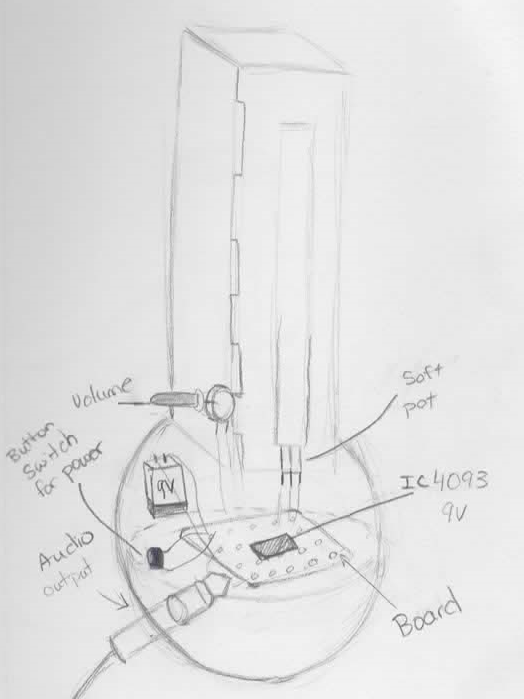 Volume
Soft
pot
Button
Switch
for power
9V
IC4093
9V
Audio
output
Board